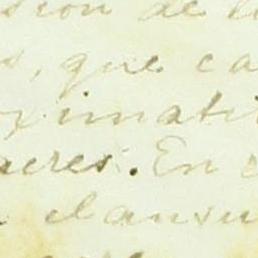 sion de l
s, que ca
ximati
acres. En
el clausu